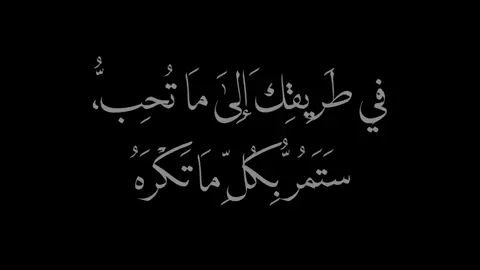 في طَرِيقِكَ إِلىَ مَا تُحِبُّ،
سَتَمُرُّ بِكُلِّ مَا تَكْرَهُ